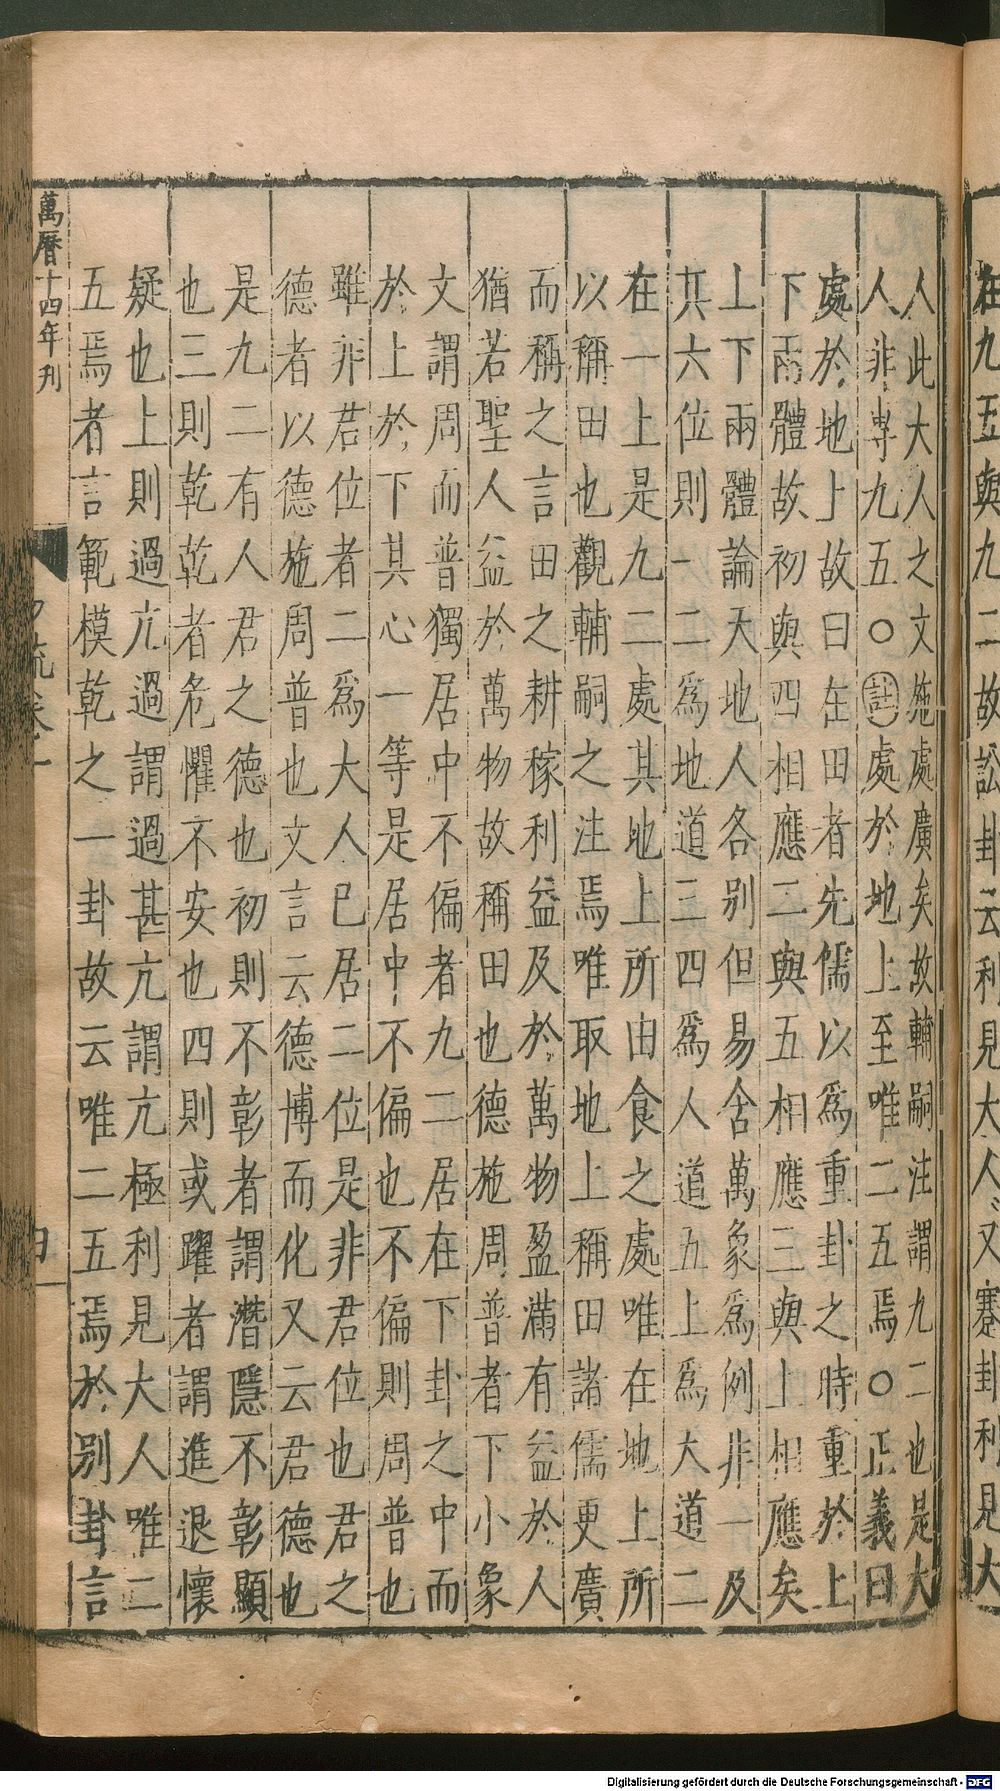 在九五與九二故訟卦云利見大人又蹇卦利見大
人此大人之文施處廣矣故輔嗣注謂九二也是大
人非專九五○註處於地上至唯二五焉○正義曰
處於地上故曰在田者先儒以爲重卦之時重於上
下兩體故初與四相應二與五相應三與上相應矣
上下兩體論大地人各別但易含萬象爲例非一及
其六位則一二爲地道三四爲人道五上爲大道二
在一上是九二處其地上所由食之處唯在地上所
以稱田也觀輔嗣之注焉唯取地上稱田諸儒更廣
而稱之言田之耕稼利益及於萬物盈滿有益於人
猶若聖人益於萬物故稱田也德施周普者下小象
文謂周而普獨居中不偏者九二居在下卦之中而
於上於下其心一等是居中不偏也不偏則周普也
雖非君位者二爲大人已居二位是非君位也君之
德者以德施周普也文言云德博而化又云君德也
是九二有人君之德也初則不彰者謂潛隱不彰顯
也三則乾乾者危懼不安也四則或躍者謂進退懷
疑也上則過亢過謂過甚亢謂亢極利見大人唯二
五焉者言範模乾之一卦故云唯二五焉於別卦言
萬曆十四年刊
Digitalisierung gefördert durch die Deutsche Forschungsgemeinschaft - DFG